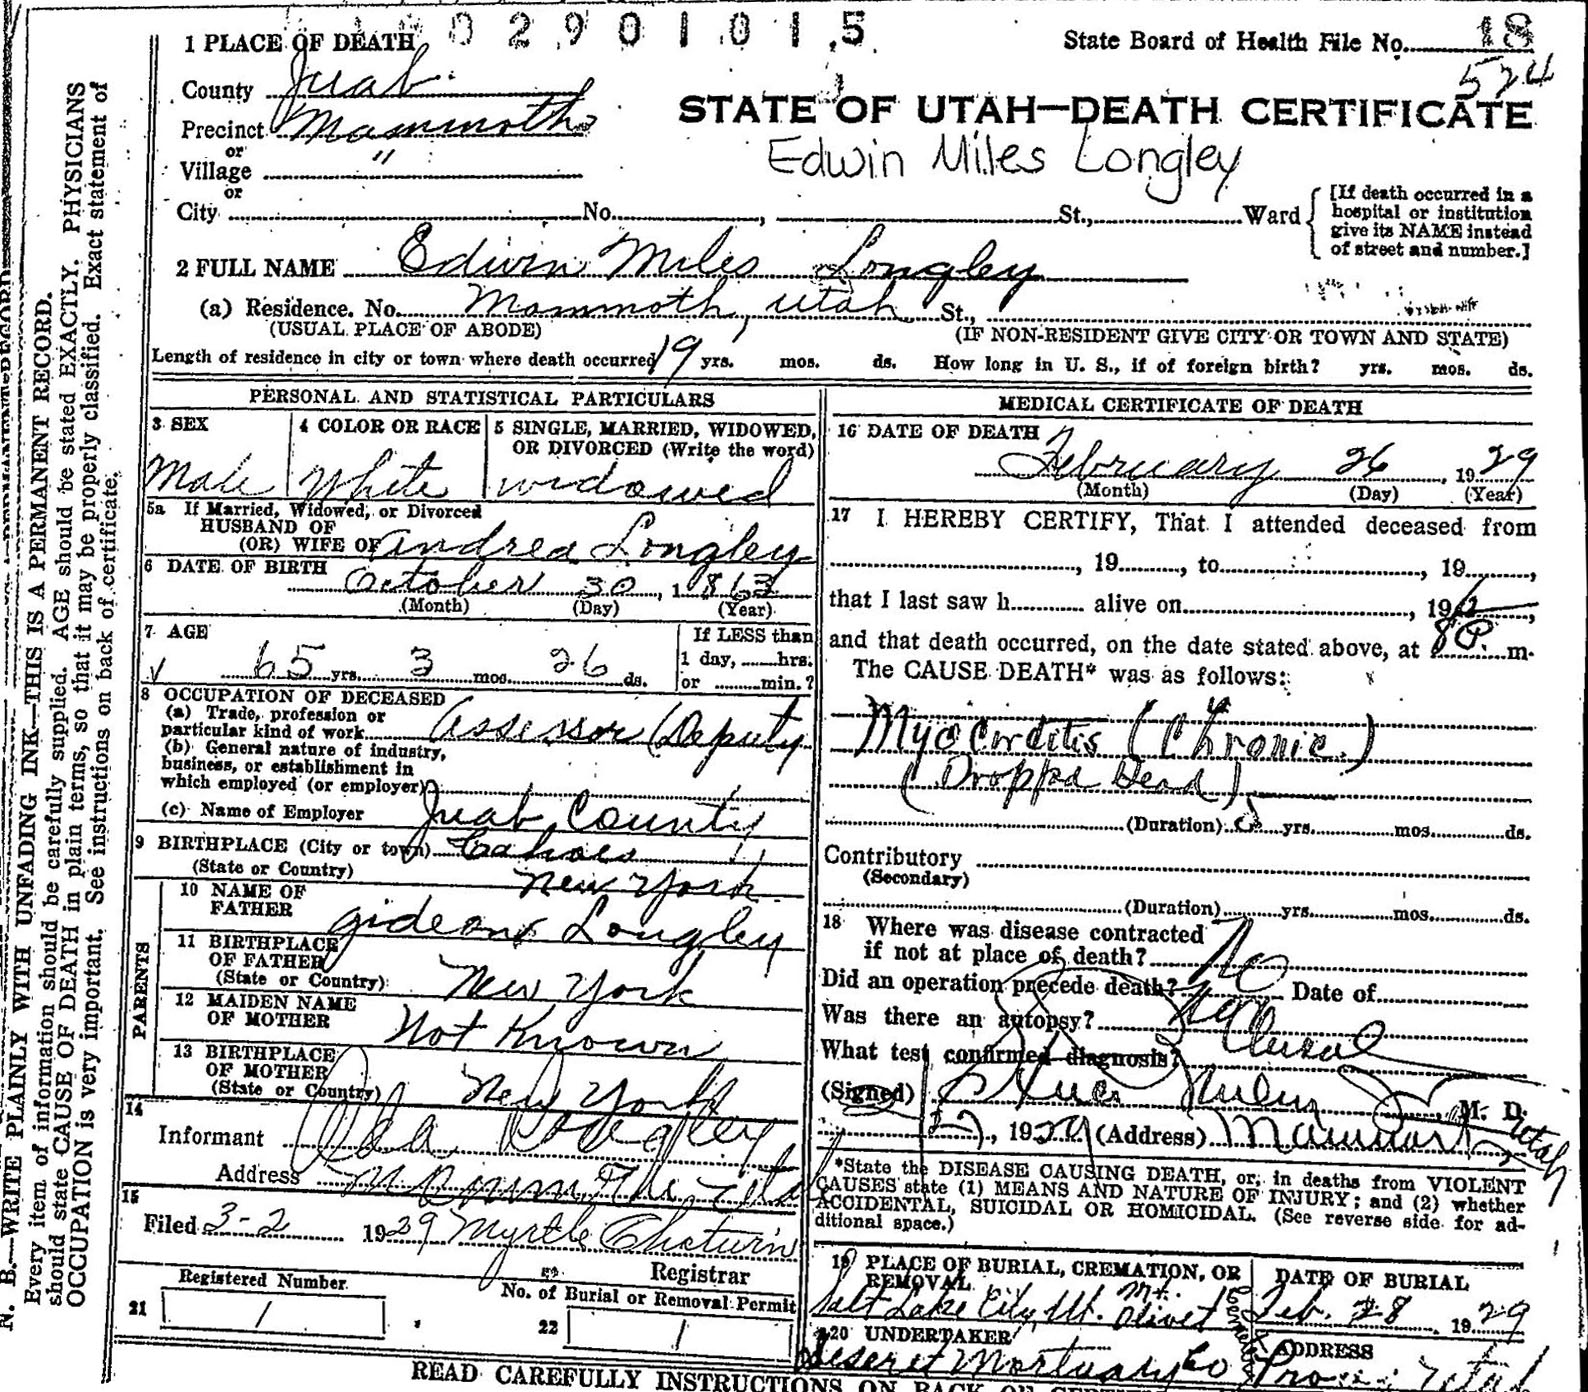 0 2 9 0 1 0 1 5
1 PLACE OF DEATH
State Board of Health File No. 18
524
County Juab
STATE OF UTAH—DEATH CERTIFICATE
Precinct Mammoth
or
Edwin Miles Longley
Village "
or
City No. , St., Ward
[If death occurred in a
hospital or institution
give its NAME instead
of street and number.]
2 FULL NAME Edwin Miles Longley
(a) Residence. No. Mammoth, Utah St.,
(USUAL PLACE OF ABODE) (IF NON-RESIDENT GIVE CITY OR TOWN AND STATE)
Length of residence in city or town where death occurred 19 yrs. mos. ds. How long in U. S., if of foreign birth? yrs. mos. ds.
PERSONAL AND STATISTICAL PARTICULARS
3 SEX
Male
4 COLOR OR RACE
White
5 SINGLE, MARRIED, WIDOWED,
OR DIVORCED (Write the word)
widowed
5a If Married, Widowed, or Divorced
HUSBAND OF
(OR) WIFE OF Andrea Longley
6 DATE OF BIRTH October 30, 1863
(Month) (Day) (Year)
7 AGE
65 yrs. 3 mos. 26 ds.
If LESS than
1 day, hrs.
or min.?
8 OCCUPATION OF DECEASED
(a) Trade, profession or
particular kind of work Assessor (Deputy
(b) General nature of industry,
business, or establishment in
which employed (or employer)
(c) Name of Employer Juab County
9 BIRTHPLACE (City or town) Cahoes
(State or Country) New York
PARENTS
10 NAME OF
FATHER Gideon Longley
11 BIRTHPLACE
OF FATHER
(State or Country) New York
12 MAIDEN NAME
OF MOTHER Not Known
13 BIRTHPLACE
OF MOTHER
(State or Country) New York
14
Informant Longley
Address Mammoth, Utah
15
Filed 3-2 1929 Myrtle
Registrar
Registered Number
21 1
No. of Burial or Removal Permit
22 1
MEDICAL CERTIFICATE OF DEATH
16 DATE OF DEATH
February 26, 1929
(Month) (Day) (Year)
17 I HEREBY CERTIFY, That I attended deceased from
, 19 , to , 19 ,
that I last saw h alive on , 19
and that death occurred, on the date stated above, at 8 P. m.
The CAUSE DEATH* was as follows:
Myocorditis (Chronic.)
(Droppd Dead)
(Duration) yrs. mos. ds.
Contributory
(Secondary)
(Duration) yrs. mos. ds.
18 Where was disease contracted
if not at place of death?
Did an operation precede death? No Date of
Was there an autopsy? No
What test confirmed diagnosis?
(Signed) , M. D.
27, 1929 (Address) Mammoth, Utah
*State the DISEASE CAUSING DEATH, or, in deaths from VIOLENT
CAUSES state (1) MEANS AND NATURE OF INJURY; and (2) whether
ACCIDENTAL, SUICIDAL OR HOMICIDAL. (See reverse side for ad-
ditional space.)
19 PLACE OF BURIAL, CREMATION, OR
REMOVAL
Salt Lake City, Ut. Mt. Olivet
DATE OF BURIAL
Feb. 28, 1929
20 UNDERTAKER
Deseret Mortuary Co
ADDRESS
Provo Utah
READ CAREFULLY INSTRUCTIONS ON BACK OF
N. B.—WRITE PLAINLY WITH UNFADING INK—THIS IS A PERMANENT RECORD.
Every item of information should be carefully supplied. AGE should be stated EXACTLY. PHYSICIANS
should state CAUSE OF DEATH in plain terms, so that it may be properly classified. Exact statement of
OCCUPATION is very important. See instructions on back of certificate.